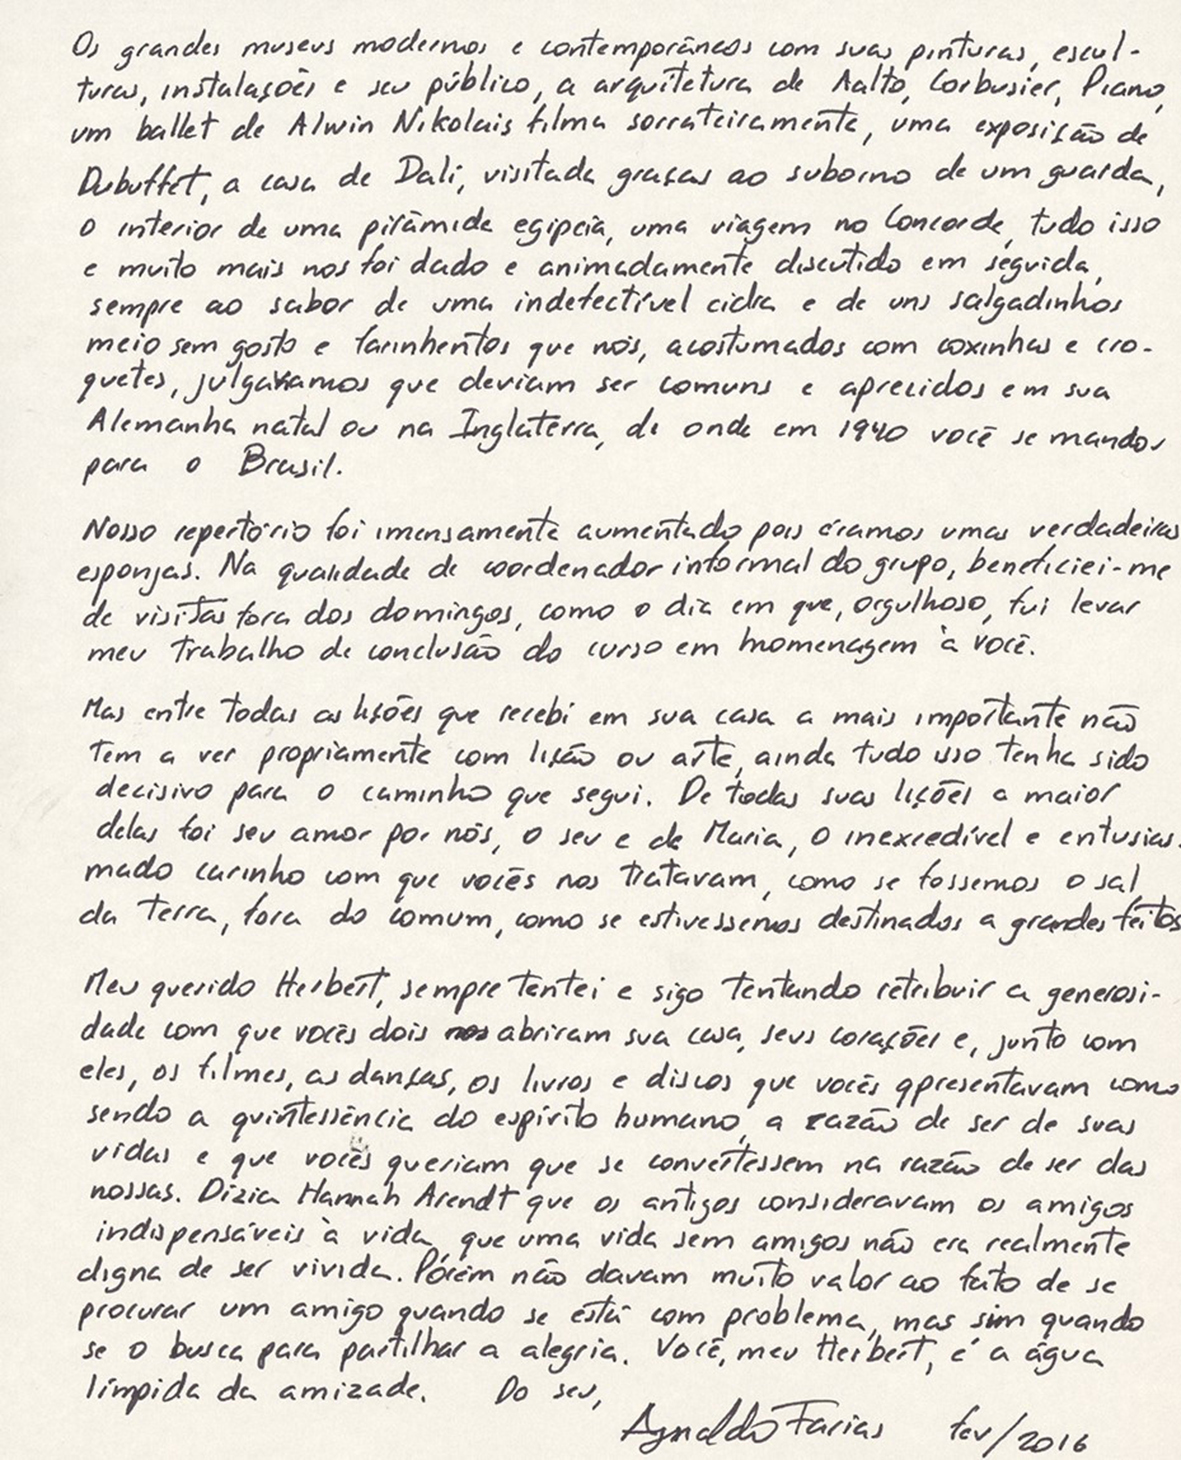 Os grandes museus modernos e contemporâneos com suas pinturas, escul-
turas, instalações e seu público, a arquitetura de Aalto, Corbusier, Piano,
um ballet de Alwin Nikolais filma sorrateiramente, uma exposição de
Dubuffet, a casa de Dali, visitada graças ao suborno de um guarda,
o interior de uma pirâmide egipcia, uma viagem no Concorde, tudo isso
e muito mais nos foi dado e animadamente discutido em seguida,
sempre ao sabor de uma indefectível cidra e de uns salgadinhos
meio sem gosto e farinhentos que nós, acostumados com coxinhas e cro-
quetes, julgavamos que deviam ser comuns e apreciados em sua
Alemanha natal ou na Inglaterra, de onde em 1940 você se mandou
para o Brasil.
Nosso repertório foi imensamente aumentado pois éramos umas verdadeiras
esponjas. Na qualidade de coordenador informal do grupo, beneficiei-me
de visitas fora dos domingos, como o dia em que, orgulhoso, fui levar
meu trabalho de conclusão do curso em homenagem à você.
Mas entre todas as lições que recebi em sua casa a mais importante não
tem a ver propriamente com lição ou arte, ainda tudo isso tenha sido
decisivo para o caminho que segui. De todas suas lições a maior
delas foi seu amor por nós, o seu e de Maria, o inexcedível e entusias-
mado carinho com que vocês nos tratavam, como se fossemos o sal
da terra, fora do comum, como se estivessemos destinados a grandes feitos
Meu querido Herbert, sempre tentei e sigo tentando retribuir a generosi-
dade com que vocês dois nos abriram sua casa, seus corações e, junto com
eles, os filmes, as danças, os livros e discos que vocês apresentavam como
sendo a quintessência do espírito humano, a razão de ser de suas
vidas e que vocês queriam que se convertessem na razão de ser das
nossas. Dizia Hannah Arendt que os antigos consideravam os amigos
indispensáveis à vida, que uma vida sem amigos não era realmente
digna de ser vivida. Porém não davam muito valor ao fato de se
procurar um amigo quando se está com problema, mas sim quando
se o busca para partilhar a alegria. Você, meu Herbert, é a água
límpida da amizade. Do seu,
Agnaldo Farias fev/2016